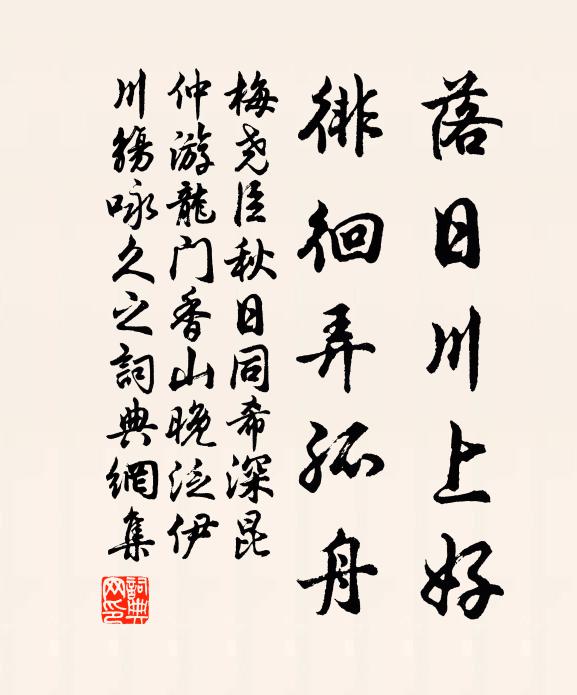 落日川上好
徘徊弄孤舟
梅尧臣秋日同希深昆
仲游龍门香山晚泛伊
川觴咏久之詞典網集
詞典网印